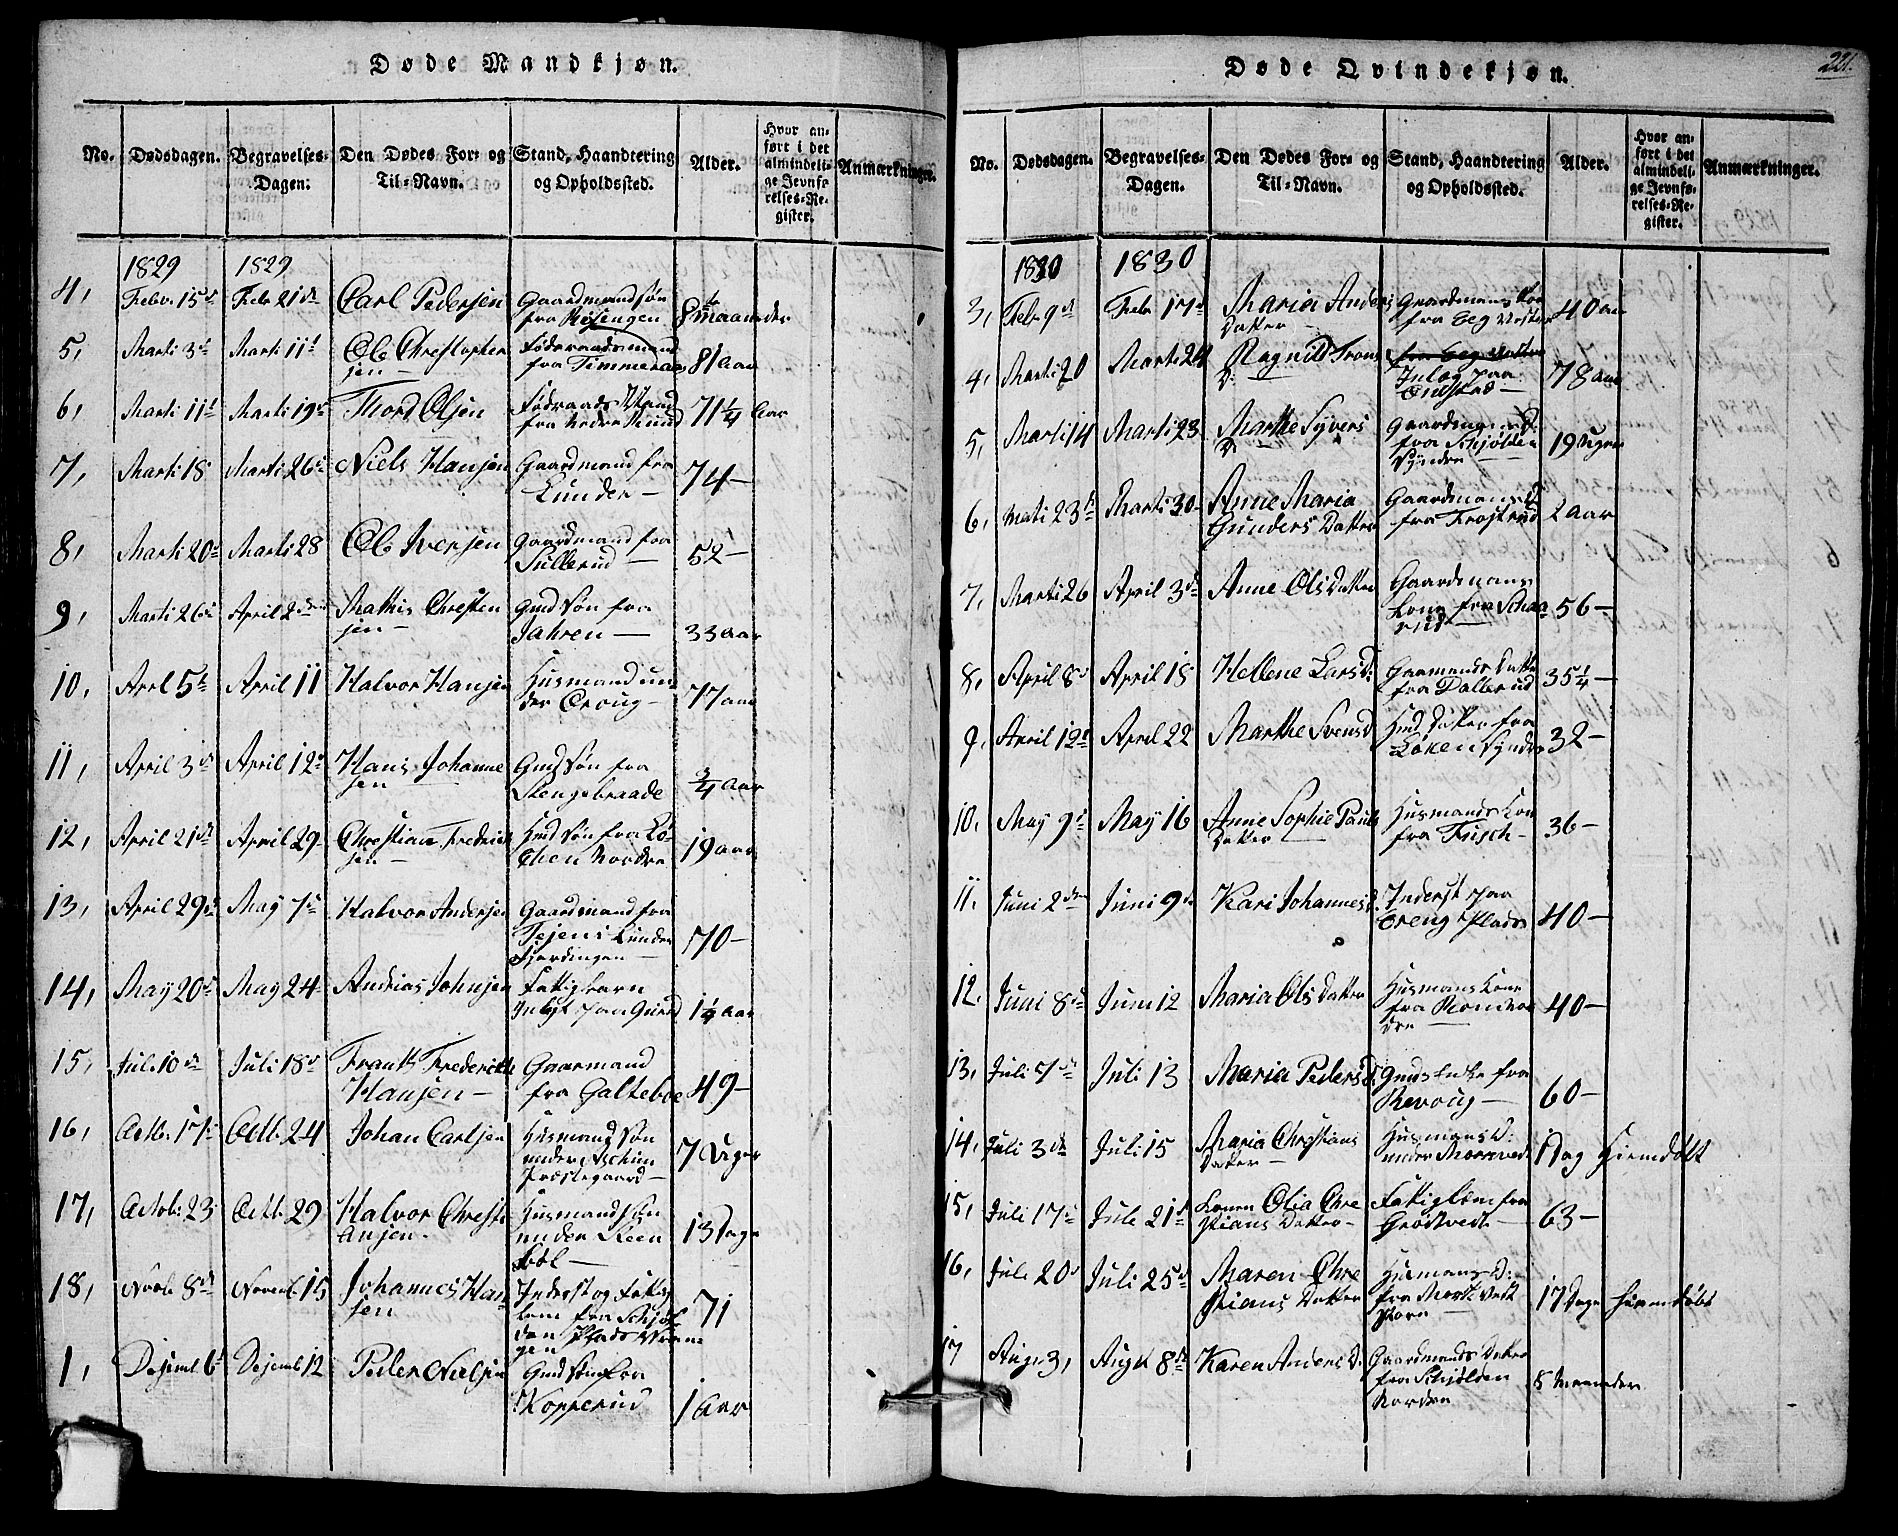 Døde Mandkjøn.
No. Dødsdagen. Begravelses-Dagen: Den Dødes For- og Til-Navn. Stand, Haandtering og Opholdssted. Alder. Hvor anført i det almindelige Jevnførelses-Register. Anmærkninger.
1829 1829
4, Febr. 15d Febr 21de Carl Pedersen Gaardmandsøn
fra 8 maaneder
5, Marti 3d Marti 11t Ole Christophersen Føderaadsmand
fra Timmeraas 81 Aar
6, Marti 11t Marti 19 Thord Olsen Føderaads Mand
fra 71 1/4 Aar
7, Marti 18 Marti 26 Niels Hansen Gaardmand fra
Lunder — 74 —
8, Marti 20 Marti 28 Ole Iversen Gaardmand fra
Sullerud — 52 —
9, Marti 26 April 2den Mathis Christensen — Gmd søn fra
Jahren — 33 aar
10, Aprl 5t April 11 Halvor Hansen Husmand under
Croug — 77 aar
11, April 3d April 12 Hans Johannesen Gmd søn fra
Stengsbraade 3/4 aar
12, April 21de April 29 Christian Fredriksen — Hmd søn fra Løchen
Nordre 19 aar
13, April 29 May 7 Halvor Andersen Gaardmand fra
Lunder
Fjerdingen — 70 —
14, May 20 May 24 Andrias Johnsen Fattigbarn
paa 1 1/4 aar
15, Juli 10de Juli 18d Frantz Frederich
Hansen — Gaarmand
fra Galteboe 49 —
16, Octb. 17 Octb. 24 Johan Carlsen Husmand søn
under Aschim
Præstegaard — 7 Uger
17, Octob: 23 Octb. 29 Halvor Christiansen. Husmandsøn
under Steen
13 Dage
18, Novb 8de Novemb 15 Johannes Hansen Inderst og Fattig
lem fra Schjølden
Plads 71
1, Desemb 6t Desemb 12 Peder Nielsen Gmd søn fra
Kopperud 1 Aar
Døde Qvindekjøn.
221.
No. Dødsdagen. Begravelses-Dagen. Den Dødes For- og Til-Navn. Stand, Haandtering og Opholdssted. Alder. Hvor anført i det almindelige Jevnførelses-Register. Anmærkninger.
1830 1830
3, Febr 9de Febr 17de Maria Anders
Datter Gaardmans Kone
fra Eeg Vestre 40 aar
4, Marti 20 Marti 24 Ragnild Trons
D: fra Eeg Vestre
Inlæg paa
Endstad — 78 aar
5, Marti 14 Marti 23 Marthe Syvers
D Gaardmans D
fra Schjølden
Syndre 19 Uger
6, Marti 23 Marti 30 Anne Maria
Gunders Datter Gaardmans D
fra Frøstrud 2 aar
7, Marti 26 April 3d Anne Olsdatter Gaardmans
Kone fra Schaarud 56 —
8, April 8d April 18 Hellene Larsd: Gaarmands Datter
fra Dallerud 35 1/4 —
9, April 12t April 22 Marthe Svensd Hmd Datter fra
Løken Syndre 32 —
10, May 9t May 16 Anne Sophie Pauls
Datter Husmands Kone
fra Frisch — 36 —
11. Juni 2den Juni 9d Kari Johannesd. Inderst paa
Ereng Plads 40 —
12. Juni 8d Juni 12 Maria Olsdatter Husmans Kone
fra 40 —
13, Juli 7d Juli 13 Maria Pedersd: Gmds Enke fra
Revoug — 60 —
14, Juli 3de Juli 15 Maria Christians
Datter — Husmans D:
under Mørkvedt 1 Dag Hiemdøbt
15, Juli 17 Juli 21d Konen Olia Christians Datter — Fattiglem fra
Grøstvedt — 63 —
16, Juli 20d Juli 25d Maren Christians Datter Husmans D:
fra Mørk vedt
17 Dage Hiemdøbt
17 Augu 3, Augu 8de Karen Anders D. Gaardmands Datter
fra Schjølden
Nordre 8 Maaneder